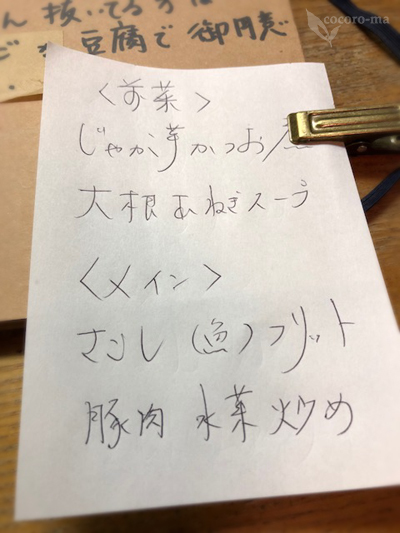 cocoro-ma
ん抜いてる方は
豆腐で御用意
〈前菜〉
じゃが芋かつお煮
大根玉ねぎスープ
〈メイン〉
さわし(魚)フリット
豚肉 水菜 炒め